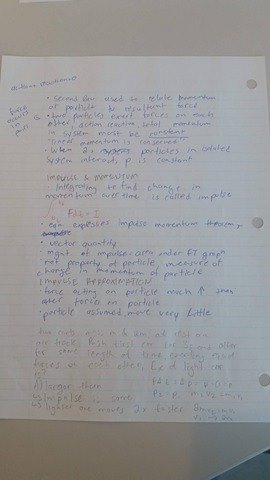 action + reaction =
force always in pair
• second law used to relate momentum
of particle to resultant force
• two particles exert forces on each
other, action reactive, total momentum
in system must be constant
"linear momentum is conserved"
• When 2+ particles in isolated
system interact, p is constant
IMPULSE & MOMENTUM
• Integrating to find change in
momentum over time is called impulse
• eqn expresses impulse momentum theorem,
• vector quantity
• mgnt of impulse = area under FT graph
• not property of particle, measure of
change in momentum of particle
IMPULSE APPROXIMATION
• force acting on particle much ↑ than
other forces on particle
• particle assumed move very little
two carts at rest on
air track. Push first cart for 3s and other
for same length of time, exerting equal
forces on each other, light car
A) larger than
↳ Impulse is same
↳ lighter one moves 2x faster